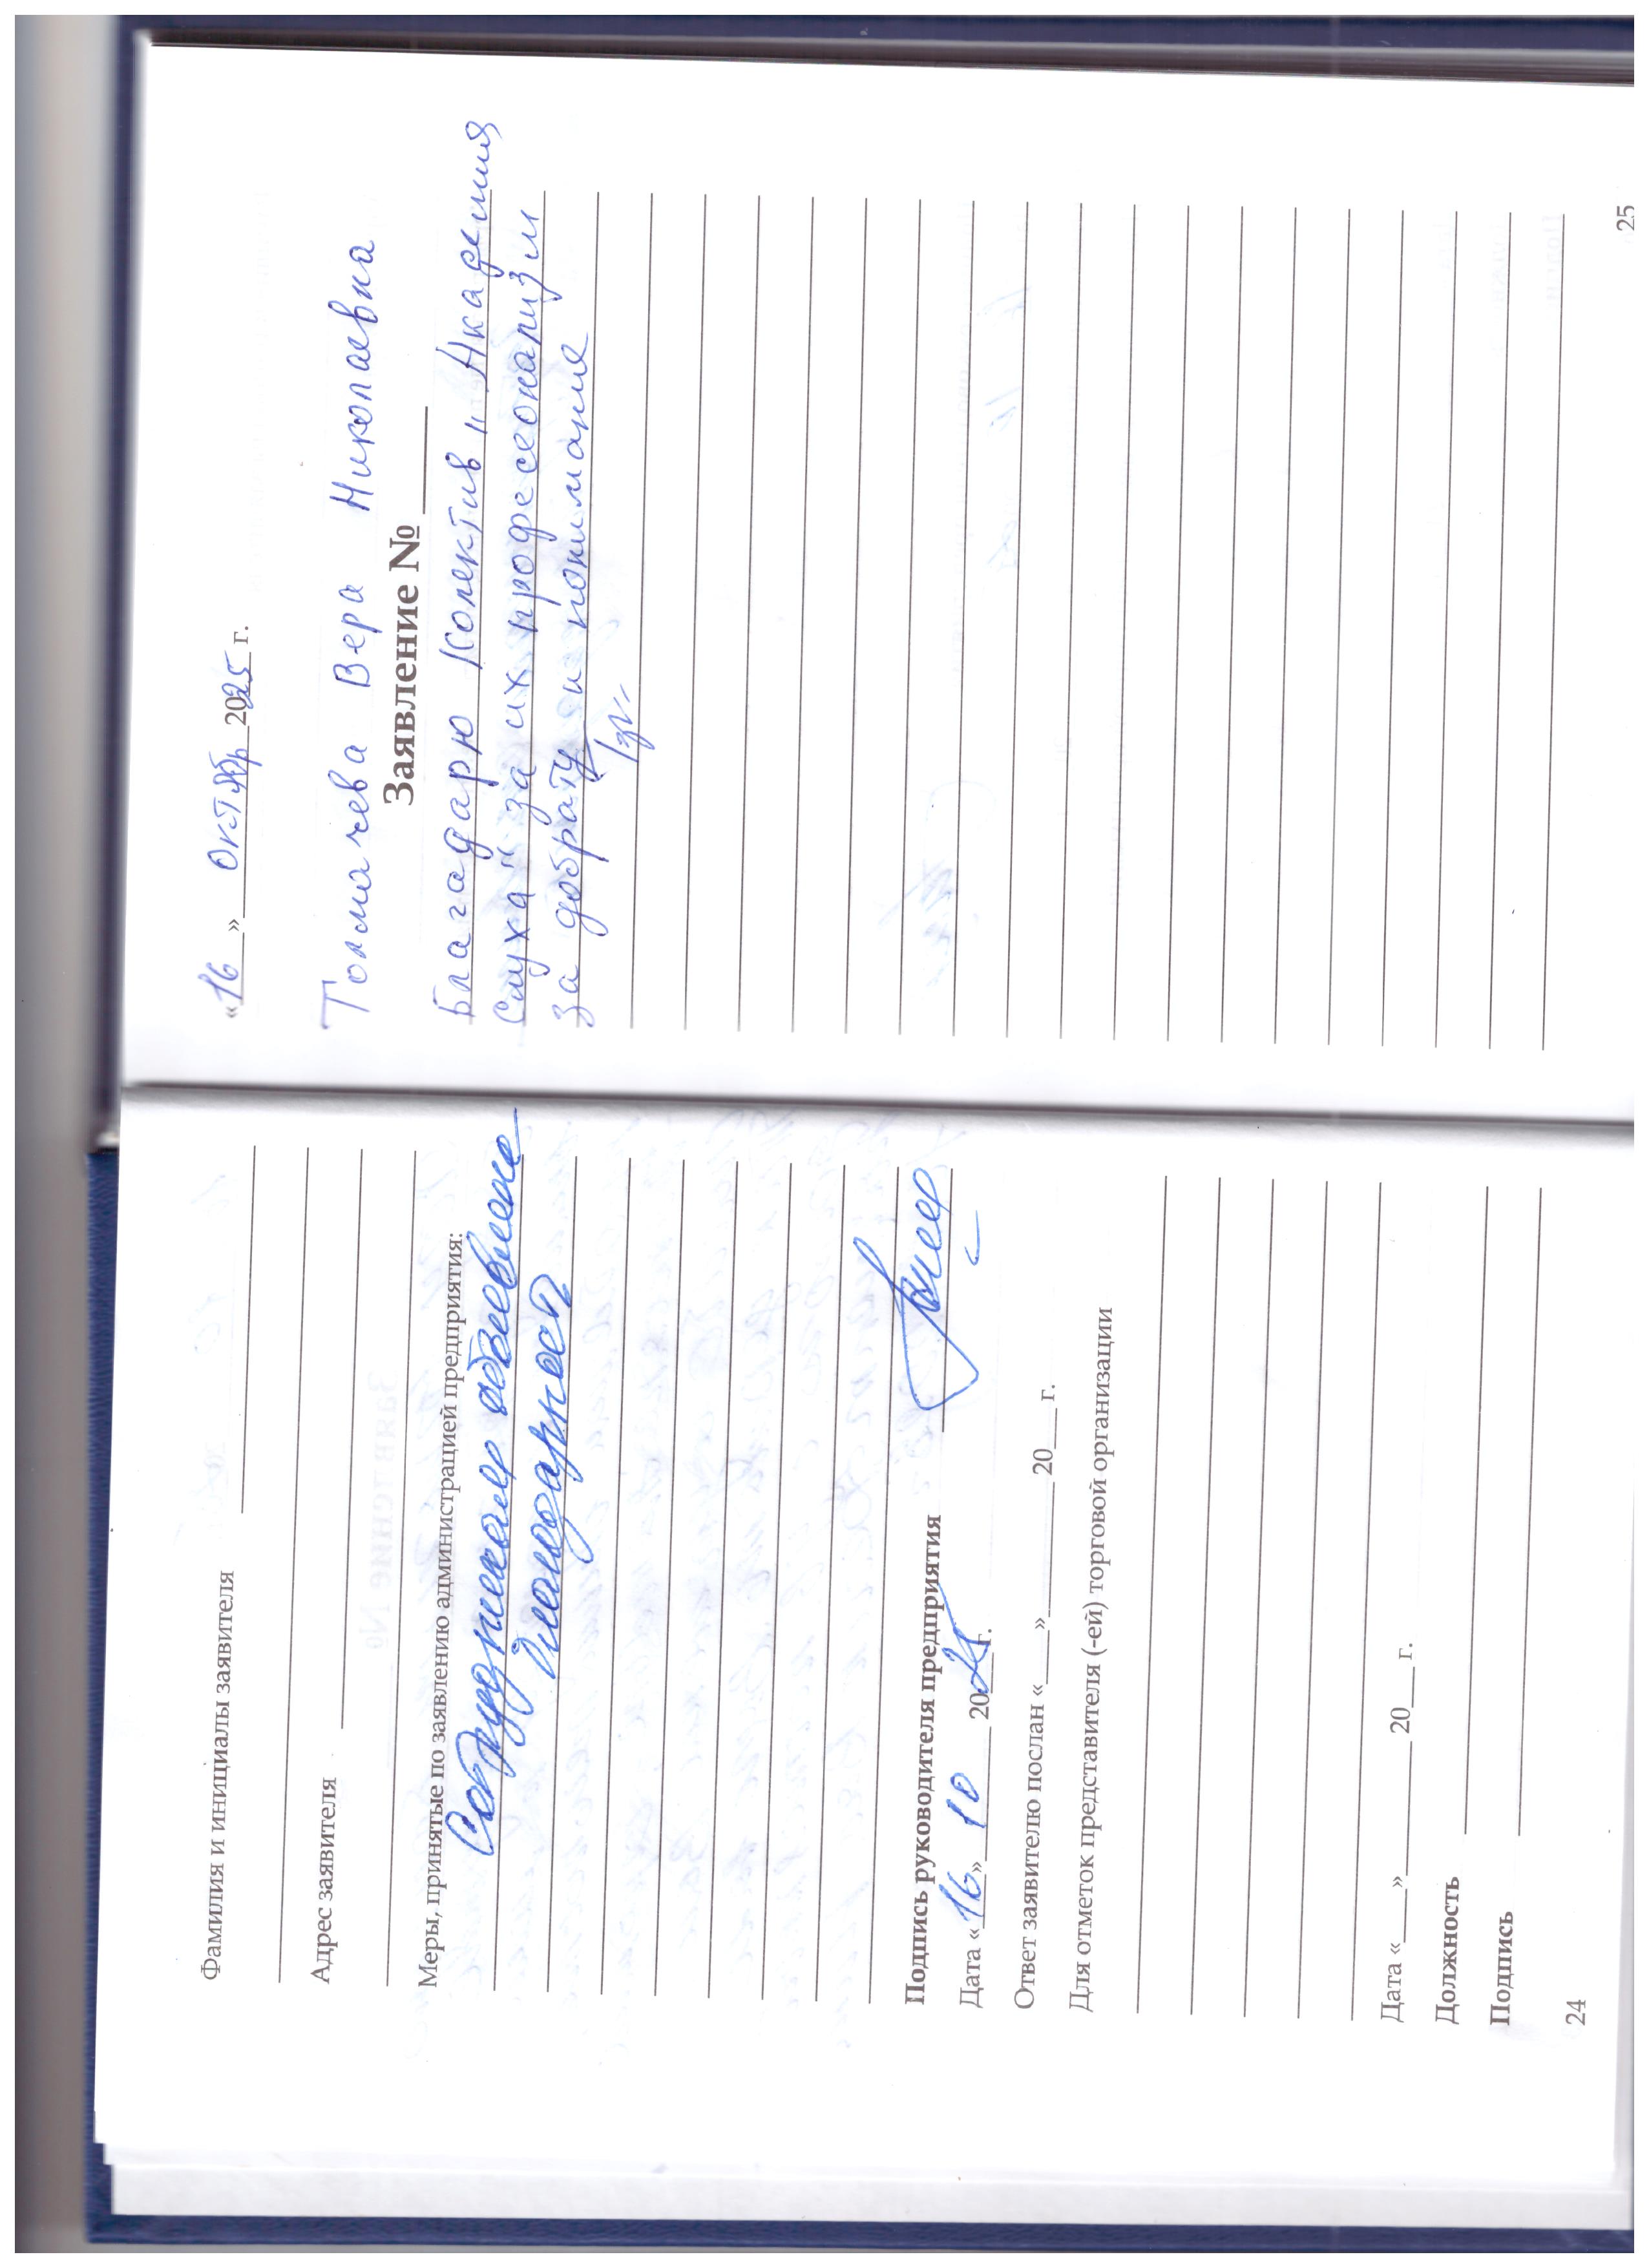 Фамилия и инициалы заявителя
Адрес заявителя
Меры, принятые по заявлению администрацией предприятия:
Сотрудникам объявлена
благодарность
Подпись руководителя предприятия
Дата «16» 10 2025 г.
Ответ заявителю послан «___» ________ 20___ г.
Для отметок представителя (-ей) торговой организации
Дата «___» ________ 20___ г.
Должность
Подпись
24
«16» Октябр 2025 г.
Толмачева Вера Николаевна
Заявление № ____
Благадарю Колектив „Академия
Слуха" за их професеонализм
за доброту и понимание
25